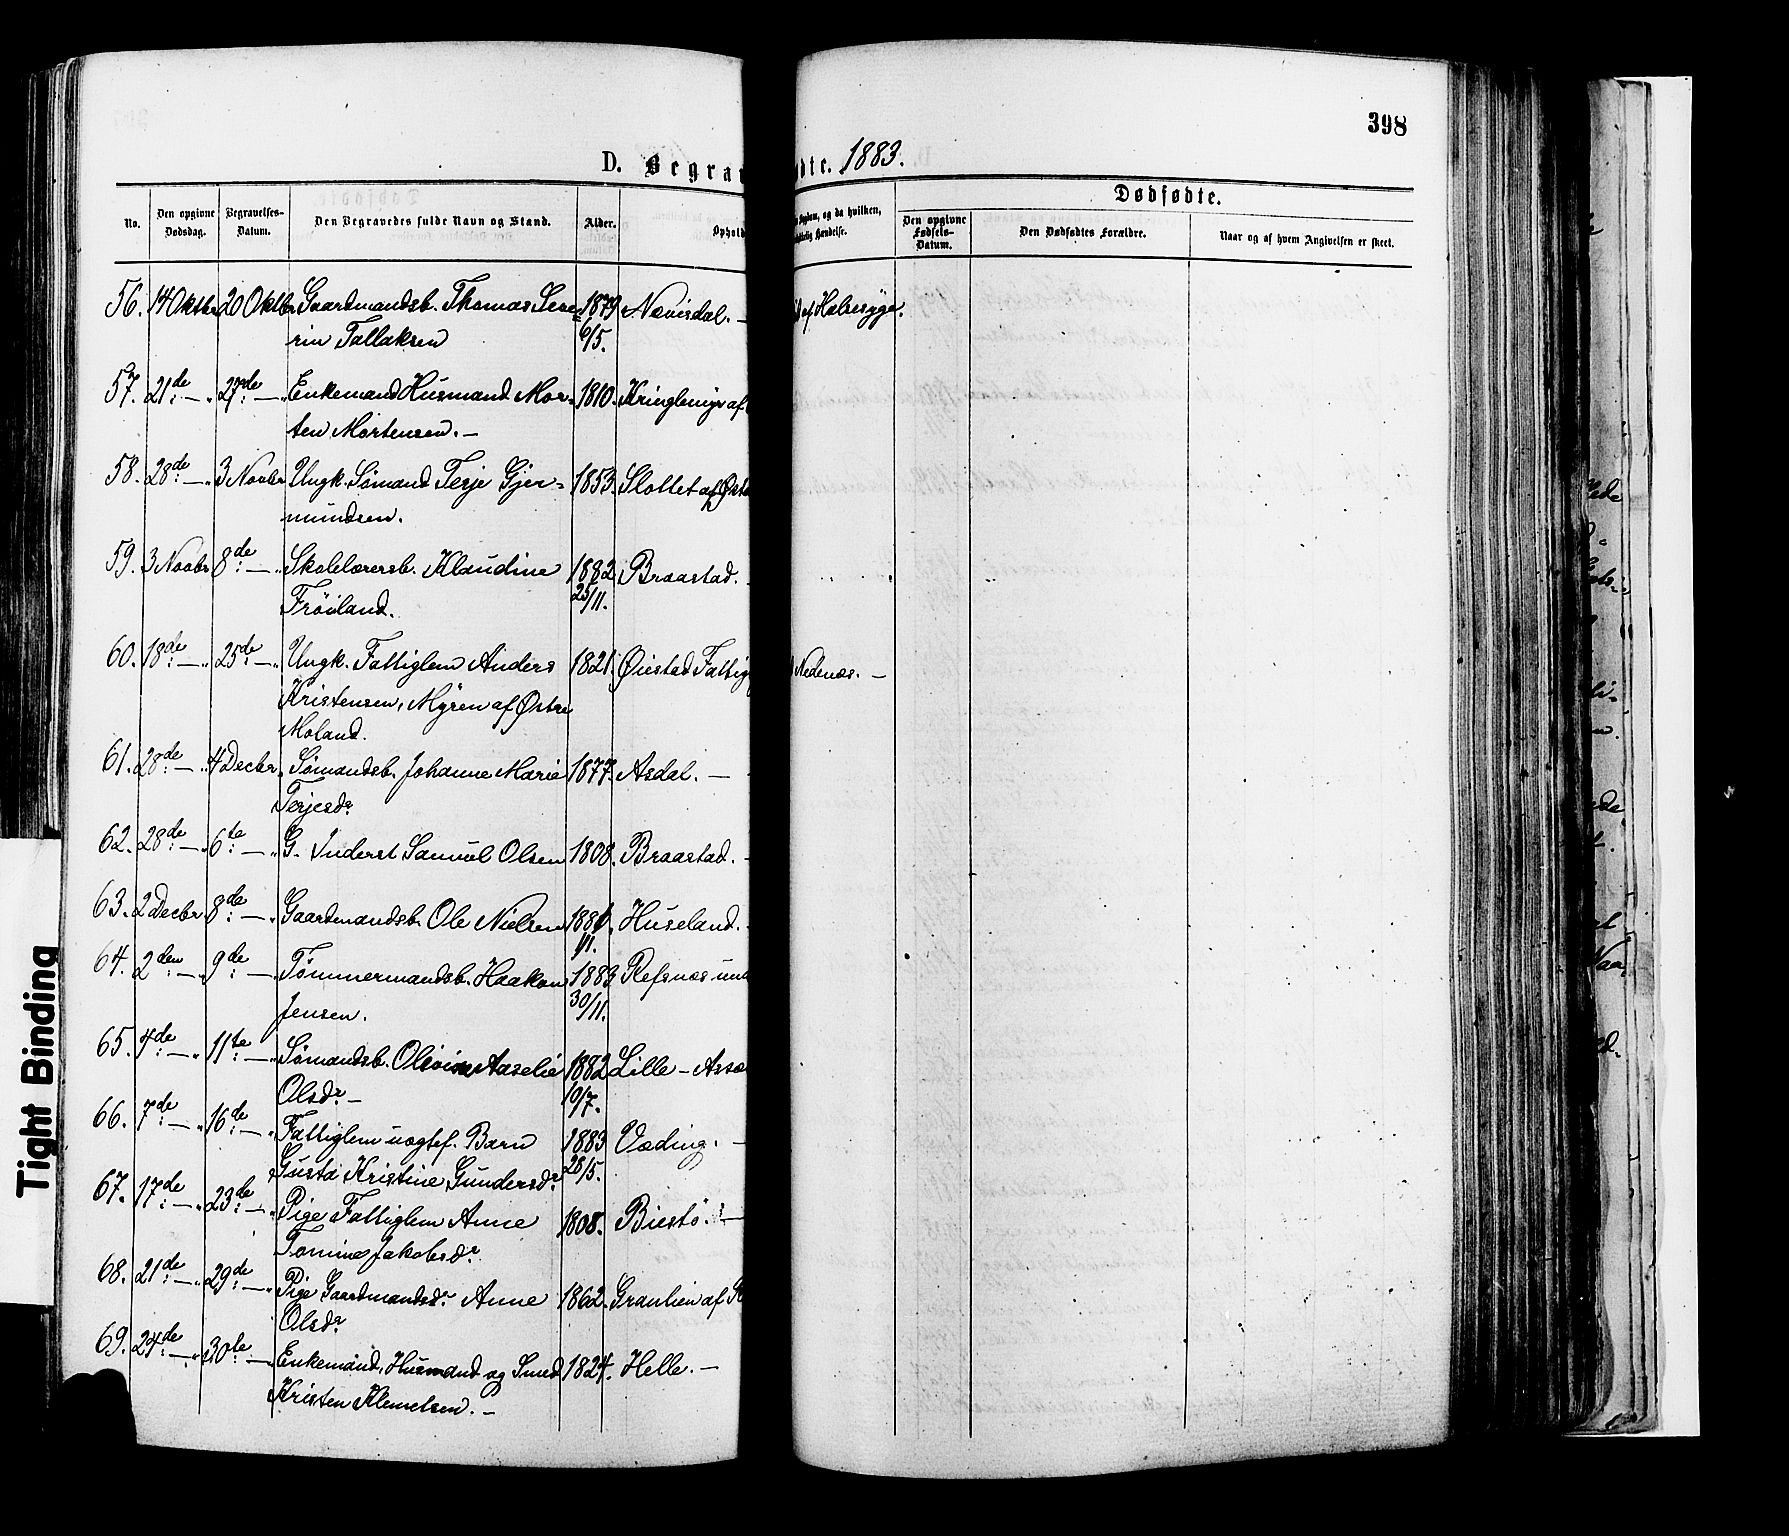 398
D. Begra dte. 1883.
No. Den opgivne Dødsdag. Begravelses-Datum. Den Begravedes fulde Navn og Stand. Alder. Ophold Sygdom, og da hvilken, Hændelse. Dødfødte.
Den opgivne Fødsels-Datum. Den Dødfødtes Forældre. Naar og af hvem Angivelsen er skeet.
56. 14 Oktbr 20 Oktbr Gaardmandsb. Thomas Seve= 1879 Nævisdal. — af Halssyge.
rin Tallaksen 6/5.
57. 21de — „ 27de — „ Enkemand Husmand Mor= 1810. Kringlemyr af
ten Mortensen. —
58. 28de — „ 3 Novbr Ungk. Sømand Terje Gjer= 1853. Slottet af Østr
mundsen.
59. 3 Novbr 8de — „ Skolelærersb. Klaudine 1882 Braastad.
Frøiland. 25/11.
60. 18de — „ 25de — „ Ungk. Fattiglem Anders 1821. Øiestad Fattig Nedenæs. —
Kristensen, Myren af Østre
Moland.
61. 28de — „ 4 Decbr. Sømandsb. Johanne Marie 1877. Asdal. —
Terjesdr
62. 28de — „ 6te — „ G. Inderst Samuel Olsen 1808. Braastad.
63. 2 Decbr. 8de — „ Gaardmandsb. Ole Nielsen 1881. Huseland.
64. 2den — „ 9de — „ Tømmermandsb. Haakon 1883 Refsnæs und
Jensen. 30/11.
65. 4de — „ 11te — „ Sømandsb. Aaselie 1882 Lille-
Olsdr — 10/7.
66. 7de — „ 16de — „ Fattiglem uægtef. Barn 1883 Væding. —
Gusta Kristine Gundersdr 28/5.
67. 17de — „ 23de — „ Pige Fattiglem Anne 1808. Biestø. —
Tomine Jakobsdr
68. 21de — „ 29de — „ Pige Gaardmandsdr Anne 1862. Granlien af
Olsdr
69. 24de — „ 30te — „ Enkemand, Husmand og Smed 1824. Helle. —
Kristen Klemetsen. —
Tight Binding